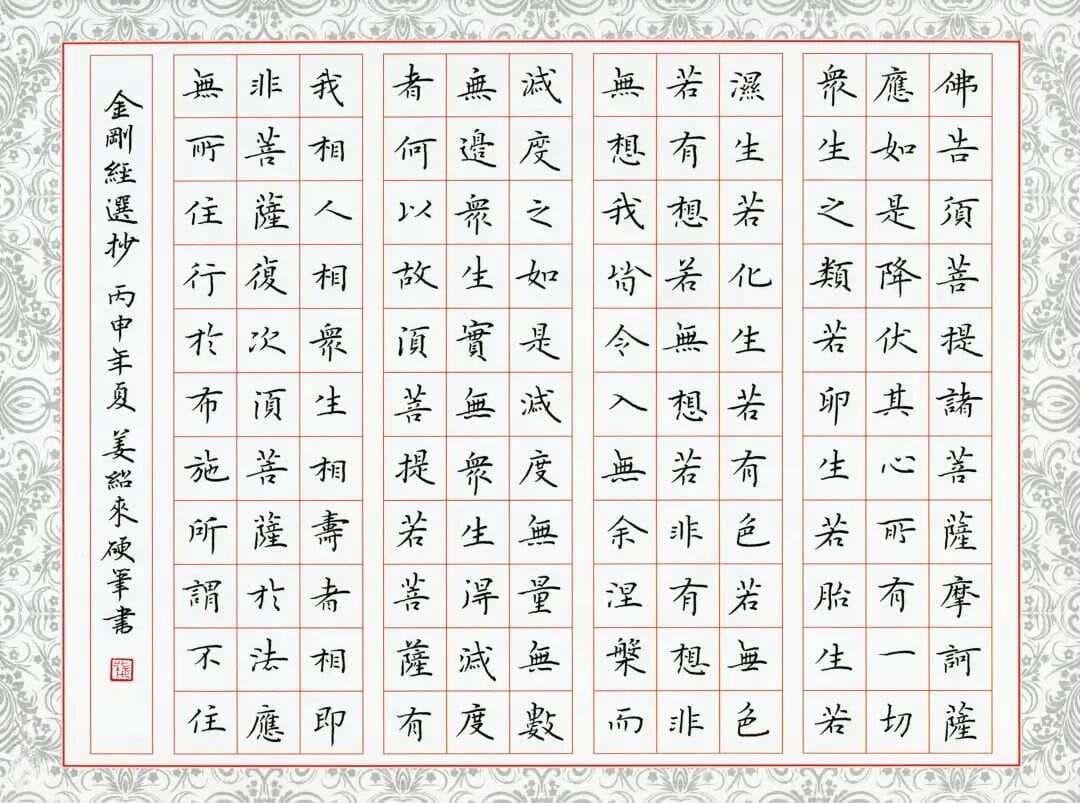 佛告須菩提諸菩薩摩訶薩
應如是降伏其心所有一切
衆生之類若卵生若胎生若
濕生若化生若有色若無色
若有想若無想若非有想非
無想我皆令入無余涅槃而
滅度之如是滅度無量無數
無邊衆生實無衆生得滅度
者何以故須菩提若菩薩有
我相人相衆生相壽者相即
非菩薩復次須菩薩於法應
無所住行於布施所謂不住
金剛經選抄 丙申年夏 姜紹來硬筆書